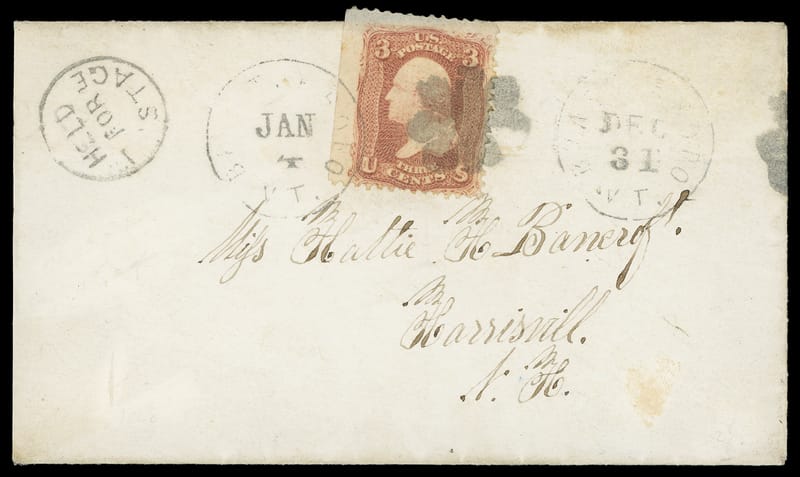 HELD
FOR
STAGE
JAN
4
VT.
3 U.S. 3
POSTAGE
U S
CENTS
DEC
31
VT.
Miss Hattie H. Bancroft.
Harrisvill.
N. H.